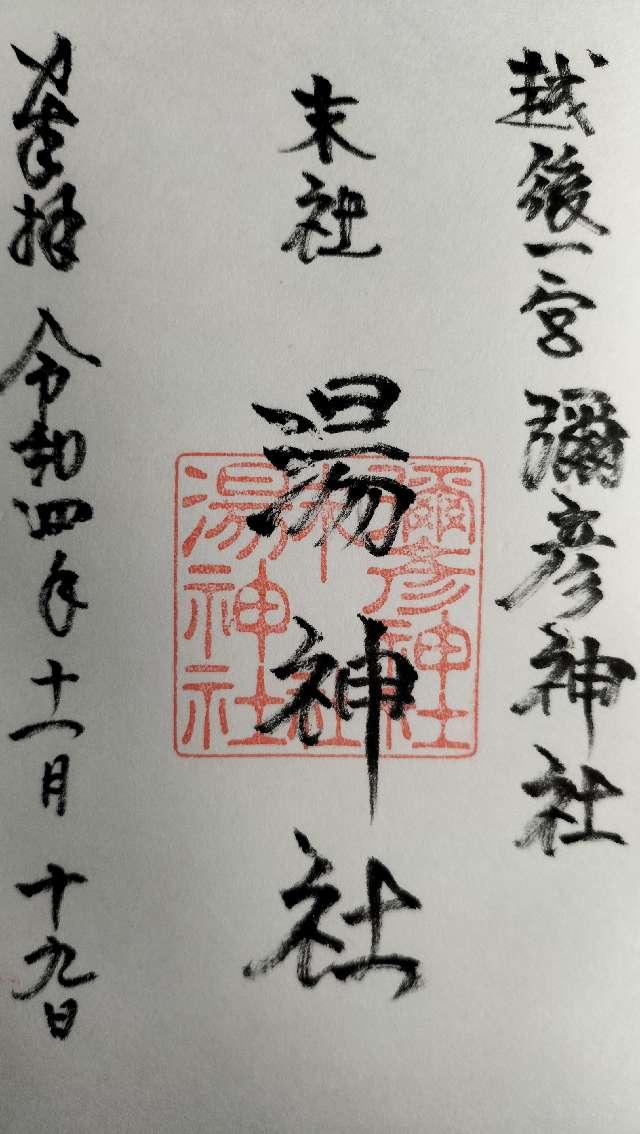 越後一宮 彌彦神社
末社
湯神社
奉拝 令和四年十一月十九日
彌彦神社
末社
湯神社